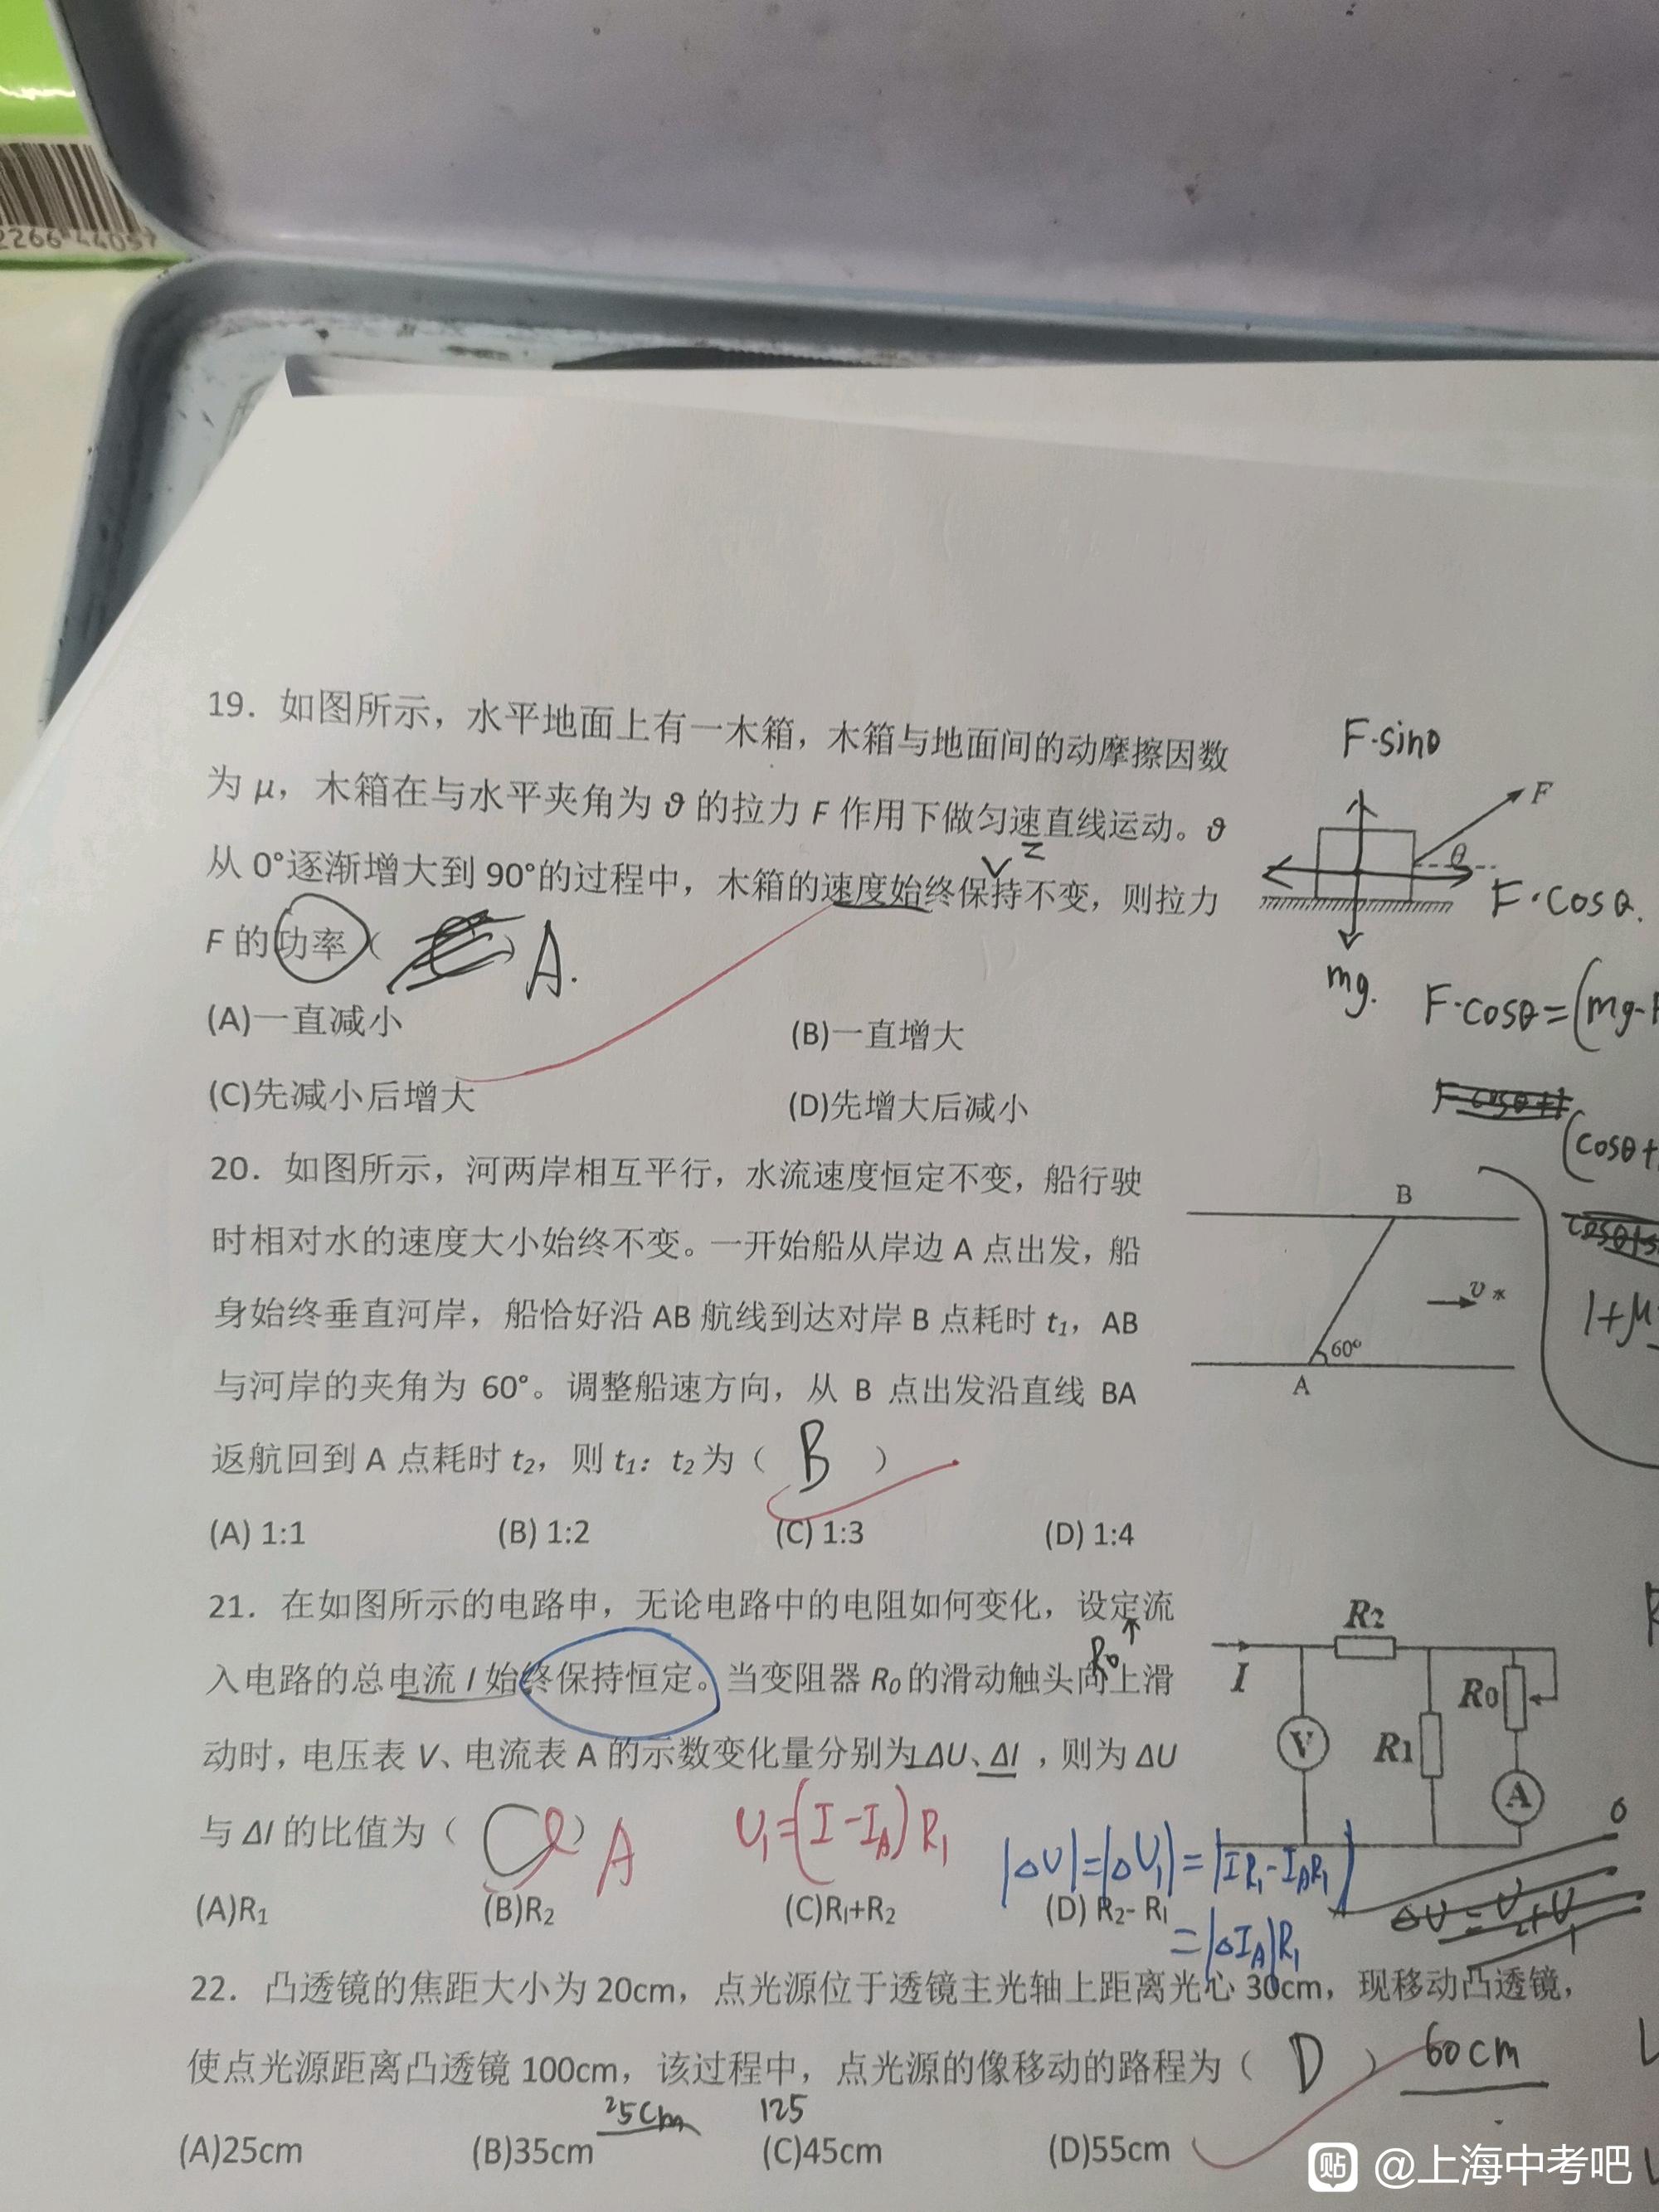 19. 如图所示，水平地面上有一木箱，木箱与地面间的动摩擦因数
为 μ，木箱在与水平夹角为 ϑ 的拉力 F 作用下做匀速直线运动。ϑ
从 0°逐渐增大到 90°的过程中，木箱的速度始终保持不变，则拉力
F 的功率（ ） A.
(A)一直减小 (B)一直增大
(C)先减小后增大 (D)先增大后减小
F·sinθ
F
θ
F·cosθ.
mg.
F·cosθ=(mg-
(cosθ+
1+μ
20. 如图所示，河两岸相互平行，水流速度恒定不变，船行驶
时相对水的速度大小始终不变。一开始船从岸边 A 点出发，船
身始终垂直河岸，船恰好沿 AB 航线到达对岸 B 点耗时 t₁，AB
与河岸的夹角为 60°。调整船速方向，从 B 点出发沿直线 BA
返航回到 A 点耗时 t₂，则 t₁：t₂为（ B ）
(A) 1:1 (B) 1:2 (C) 1:3 (D) 1:4
B
υ水
60°
A
21. 在如图所示的电路申，无论电路中的电阻如何变化，设定流
入电路的总电流 I 始终保持恒定。当变阻器 R₀的滑动触头向上滑
动时，电压表 V、电流表 A 的示数变化量分别为 ΔU、ΔI ，则为 ΔU
与 ΔI 的比值为（ ） A
(A)R₁ (B)R₂ (C)R₁+R₂ (D) R₂- R₁
R₀↑
U₁=(I-I_A)R₁
|ΔU|=|ΔU₁|=|IR₁-I_AR₁|
=|ΔI_A|R₁
R2
I
R0
V
R1
A
22. 凸透镜的焦距大小为 20cm，点光源位于透镜主光轴上距离光心 30cm，现移动凸透镜，
使点光源距离凸透镜 100cm，该过程中，点光源的像移动的路程为（ D ） 60cm
25cm 125
(A)25cm (B)35cm (C)45cm (D)55cm
2266 44057
贴 @上海中考吧